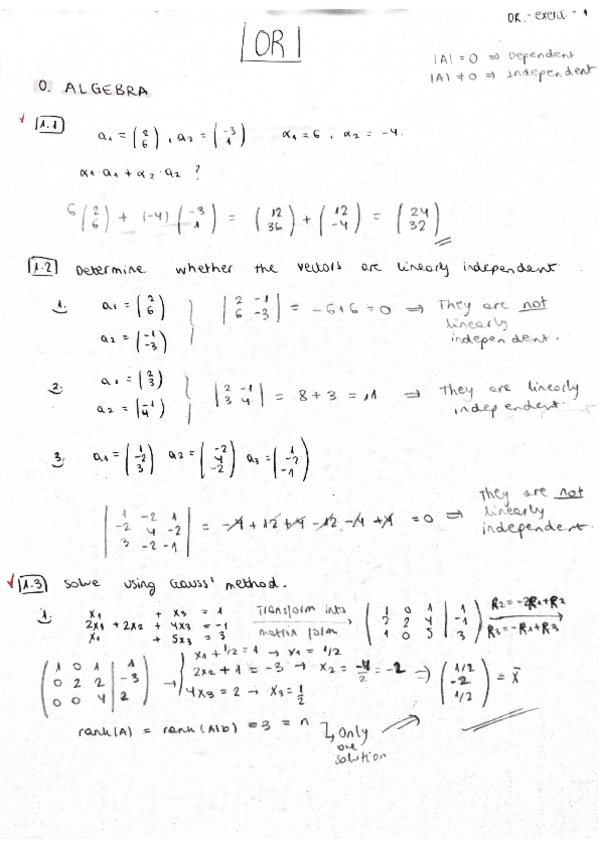 OR - exerc. - 1
OR
|A| = 0 ⇒ Dependent
|A| ≠ 0 ⇒ Independent
0. ALGEBRA
1.1 a₁ = (2 6), a₂ = (-3 1) α₁ = 6, α₂ = -4.
α₁·a₁ + α₂·a₂ ?
6 (2 6) + (-4) (-3 1) = (12 36) + (12 -4) = (24 32)
1.2 Determine whether the vectors are linearly independent
1. a₁ = (2 6) a₂ = (-1 -3) } |2 -1 6 -3| = -6+6 = 0 ⇒ They are not linearly independent.
2. a₁ = (2 3) a₂ = (-1 4) } |2 -1 3 4| = 8+3 = 11 ⇒ They are linearly independent.
3. a₁ = (1 -2 3) a₂ = (-2 4 -2) a₃ = (1 -2 -1)
|1 -2 1 -2 4 -2 3 -2 -1| = -4 + 12 + 4 - 12 - 4 + 4 = 0 ⇒ They are not linearly independent.
1.3 Solve using Gauss' method.
1. x₁ + x₃ = 1
2x₁ + 2x₂ + 4x₃ = -1
x₁ + 5x₃ = 3
Transform into matrix form
(1 0 1 | 1
2 2 4 | -1
1 0 5 | 3)
R₂ = -2R₁+R₂
R₃ = -R₁+R₃
(1 0 1 | 1
0 2 2 | -3
0 0 4 | 2)
x₁ + 1/2 = 1 → x₁ = 1/2
2x₂ + 1 = -3 → x₂ = -4/2 = -2
4x₃ = 2 → x₃ = 1/2
⇒ (1/2 -2 1/2) = x̄
rank(A) = rank(A|b) = 3 = n
↳ Only one solution